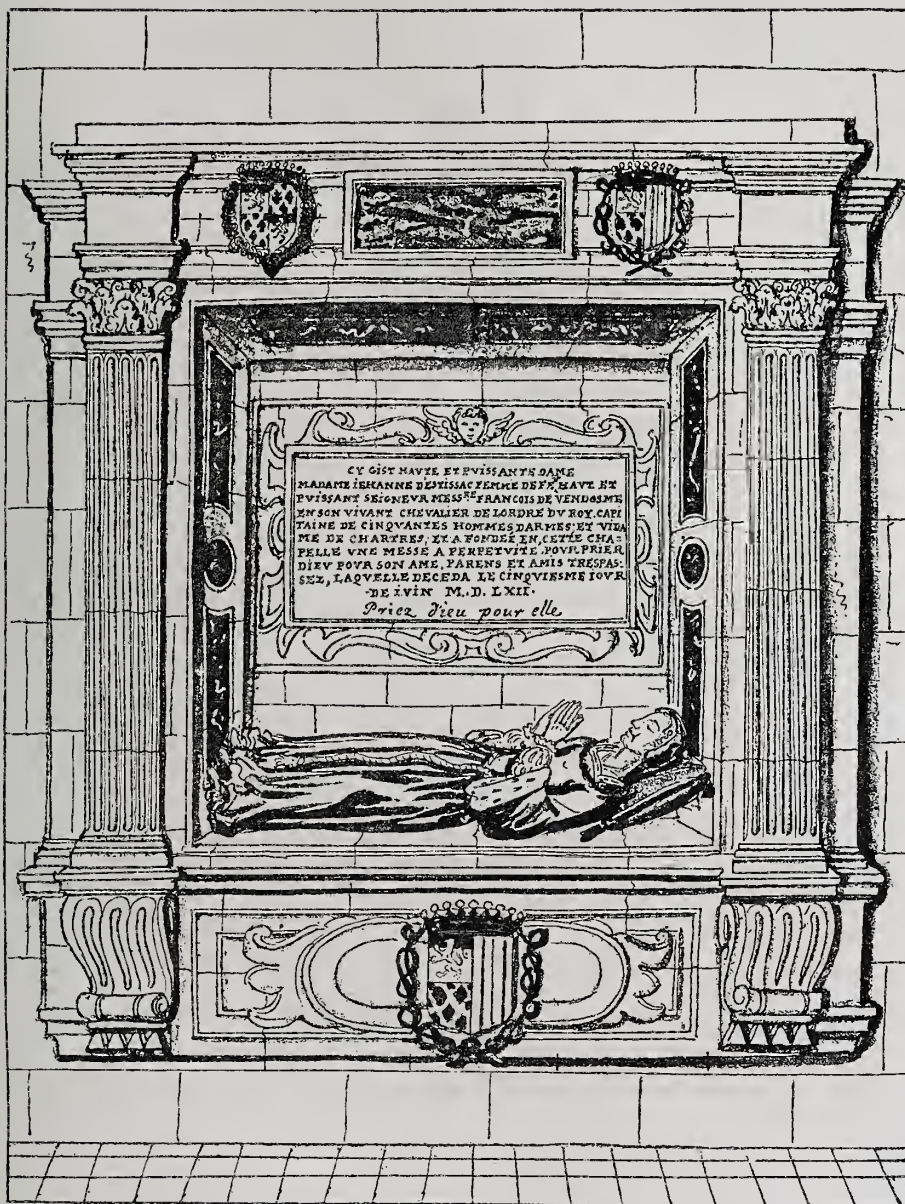 CY GIST HAVTE ET PVISSANTE DAME
MADAME IEHANNE DESTISSAC FEMME DE FE, HAVT ET
PVISSANT SEIGNEVR MESSRE FRANCOIS DE VENDOSME
EN SON VIVANT CHEVALIER DE LORDRE DV ROY, CAPI
TAINE DE CINQVANTES HOMMES DARMES, ET VIDA
ME DE CHARTRES, ET A FONDÉE EN, CETTE CHA=
PELLE VNE MESSE A PERPETVITE, POVR PRIER
DIEV POVR SON AME, PARENS ET AMIS TRESPAS=
SEZ, LAQVELLE DECEDA LE CINQVIESME IOVR
DE IVIN M.D. LXII.
Priez Dieu pour elle